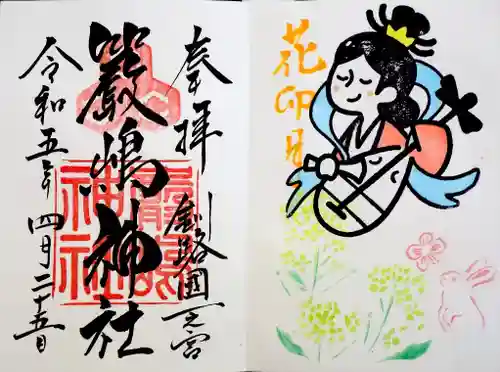 奉拝
釧路國一之宮
嚴嶋神社
令和五年四月二十五日
花卯月